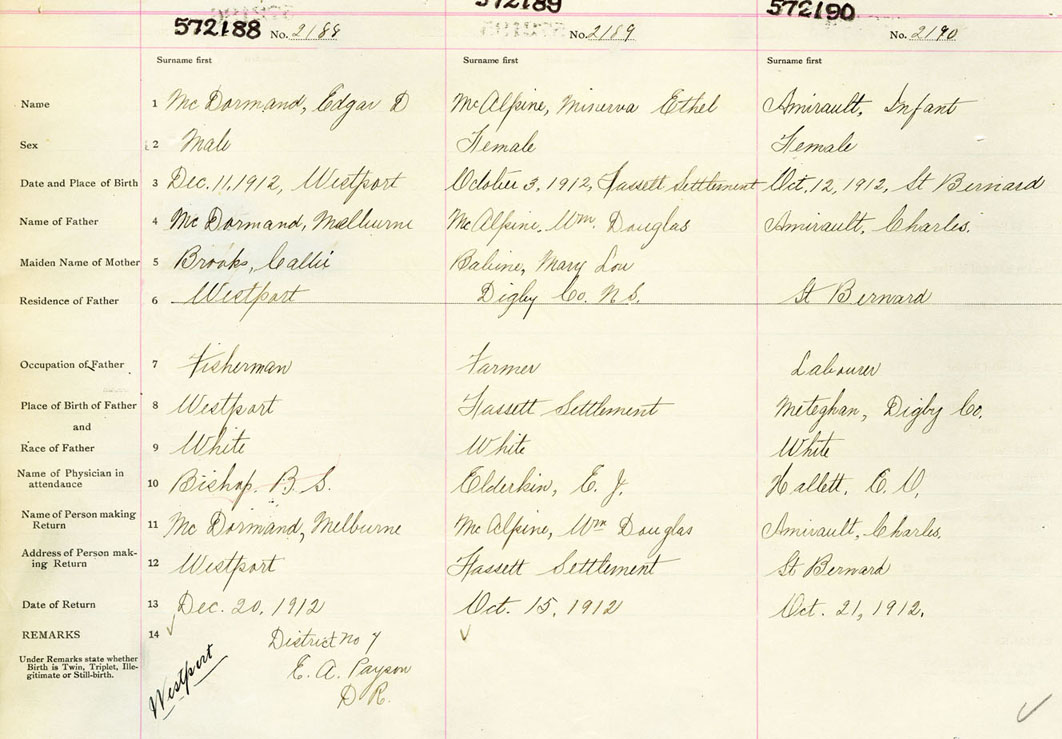 572188 No. 2188 572189 No. 2189 572190 No. 2190
Surname first Surname first Surname first
Name 1 McDormand, Edgar D McAlpine, Minerva Ethel Amirault, Infant
Sex 2 Male Female Female
Date and Place of Birth 3 Dec. 11, 1912, Westport October 3, 1912, Hassett Settlement Oct. 12, 1912, St Bernard
Name of Father 4 McDormand, Melburne McAlpine, Wm. Douglas Amirault, Charles.
Maiden Name of Mother 5 Brooks, Callie Babine, Mary Lou
Residence of Father 6 Westport Digby Co. N.S. St Bernard
Occupation of Father 7 Fisherman Farmer Labourer
Place of Birth of Father 8 Westport Hassett Settlement Meteghan, Digby Co.
and
Race of Father 9 White White White
Name of Physician in
attendance 10 Bishop. B. S. Elderkin, E. J. Hallett,
Name of Person making
Return 11 McDormand, Melburne McAlpine, Wm Douglas Amirault, Charles.
Address of Person mak-
ing Return 12 Westport Hassett Settlement St Bernard
Date of Return 13 Dec. 20, 1912 Oct. 15, 1912 Oct. 21, 1912.
REMARKS 14 District No 7
Under Remarks state whether
Birth is Twin, Triplet, Ille-
gitimate or Still-birth.
Westport
E. A. Payson
D R.